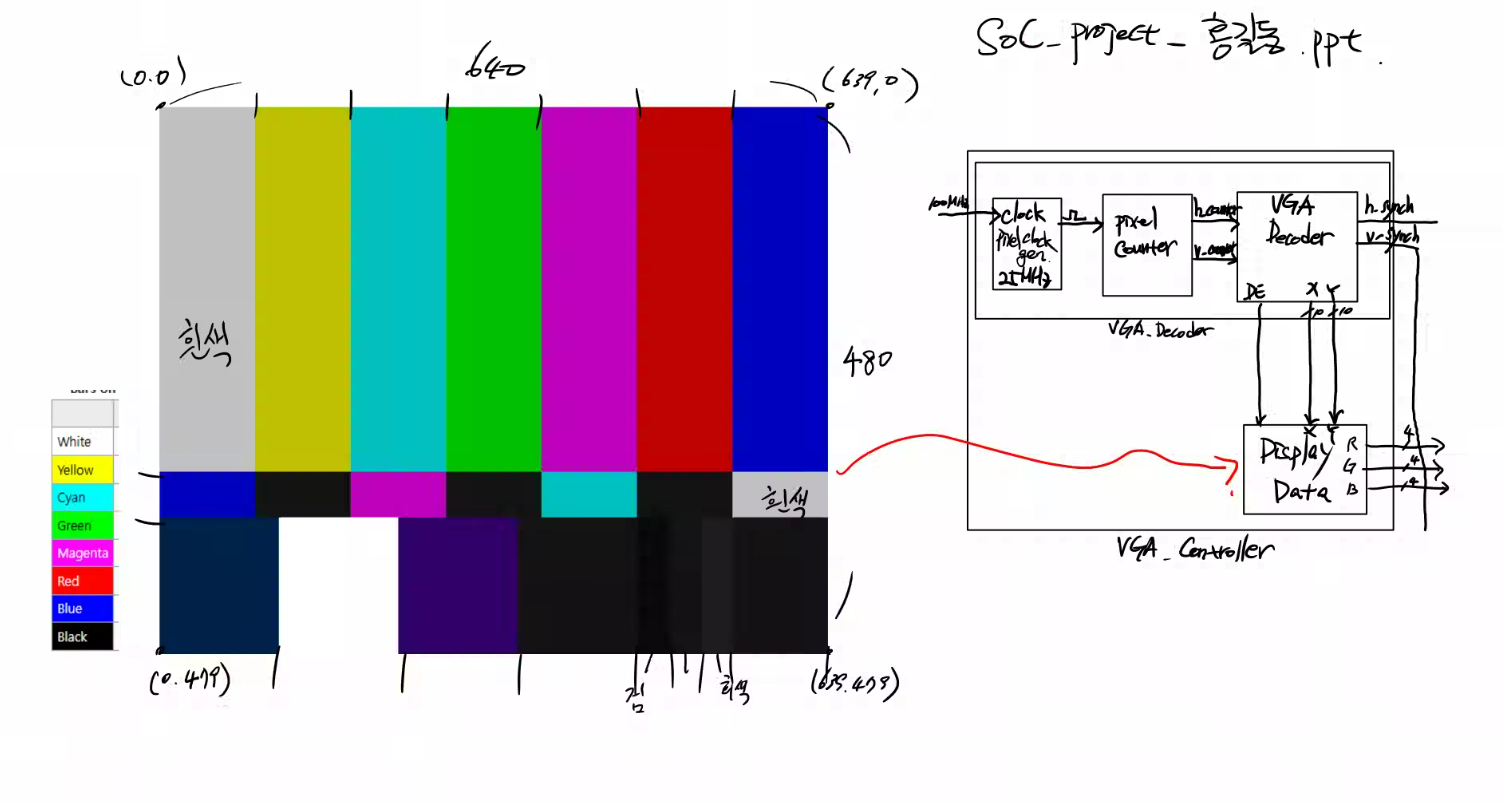 SoC_project_홍길동.ppt.
(0.0)
640
(639,0)
흰색
480
흰색
White
Yellow
Cyan
Green
Magenta
Red
Blue
Black
(0.479)
검
흰색
(639.479)
100MHz
clock
pixel clock
gen.
25MHz
pixel
counter
h.counter
v_count
VGA
Decoder
h_synch
v_synch
DE
X
Y
10
10
VGA_Decoder
X
Y
Display
Data
R
G
B
4
4
4
VGA_Controller